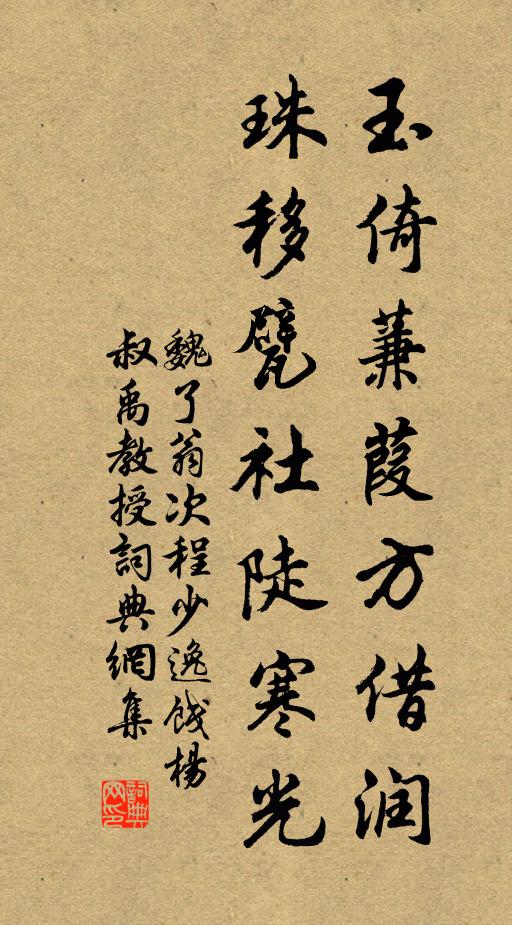 玉倚蒹葭方借润
珠移甓社陡寒光
魏了翁次程少逸饯杨
叔禹教授詞典網集
詞典网印